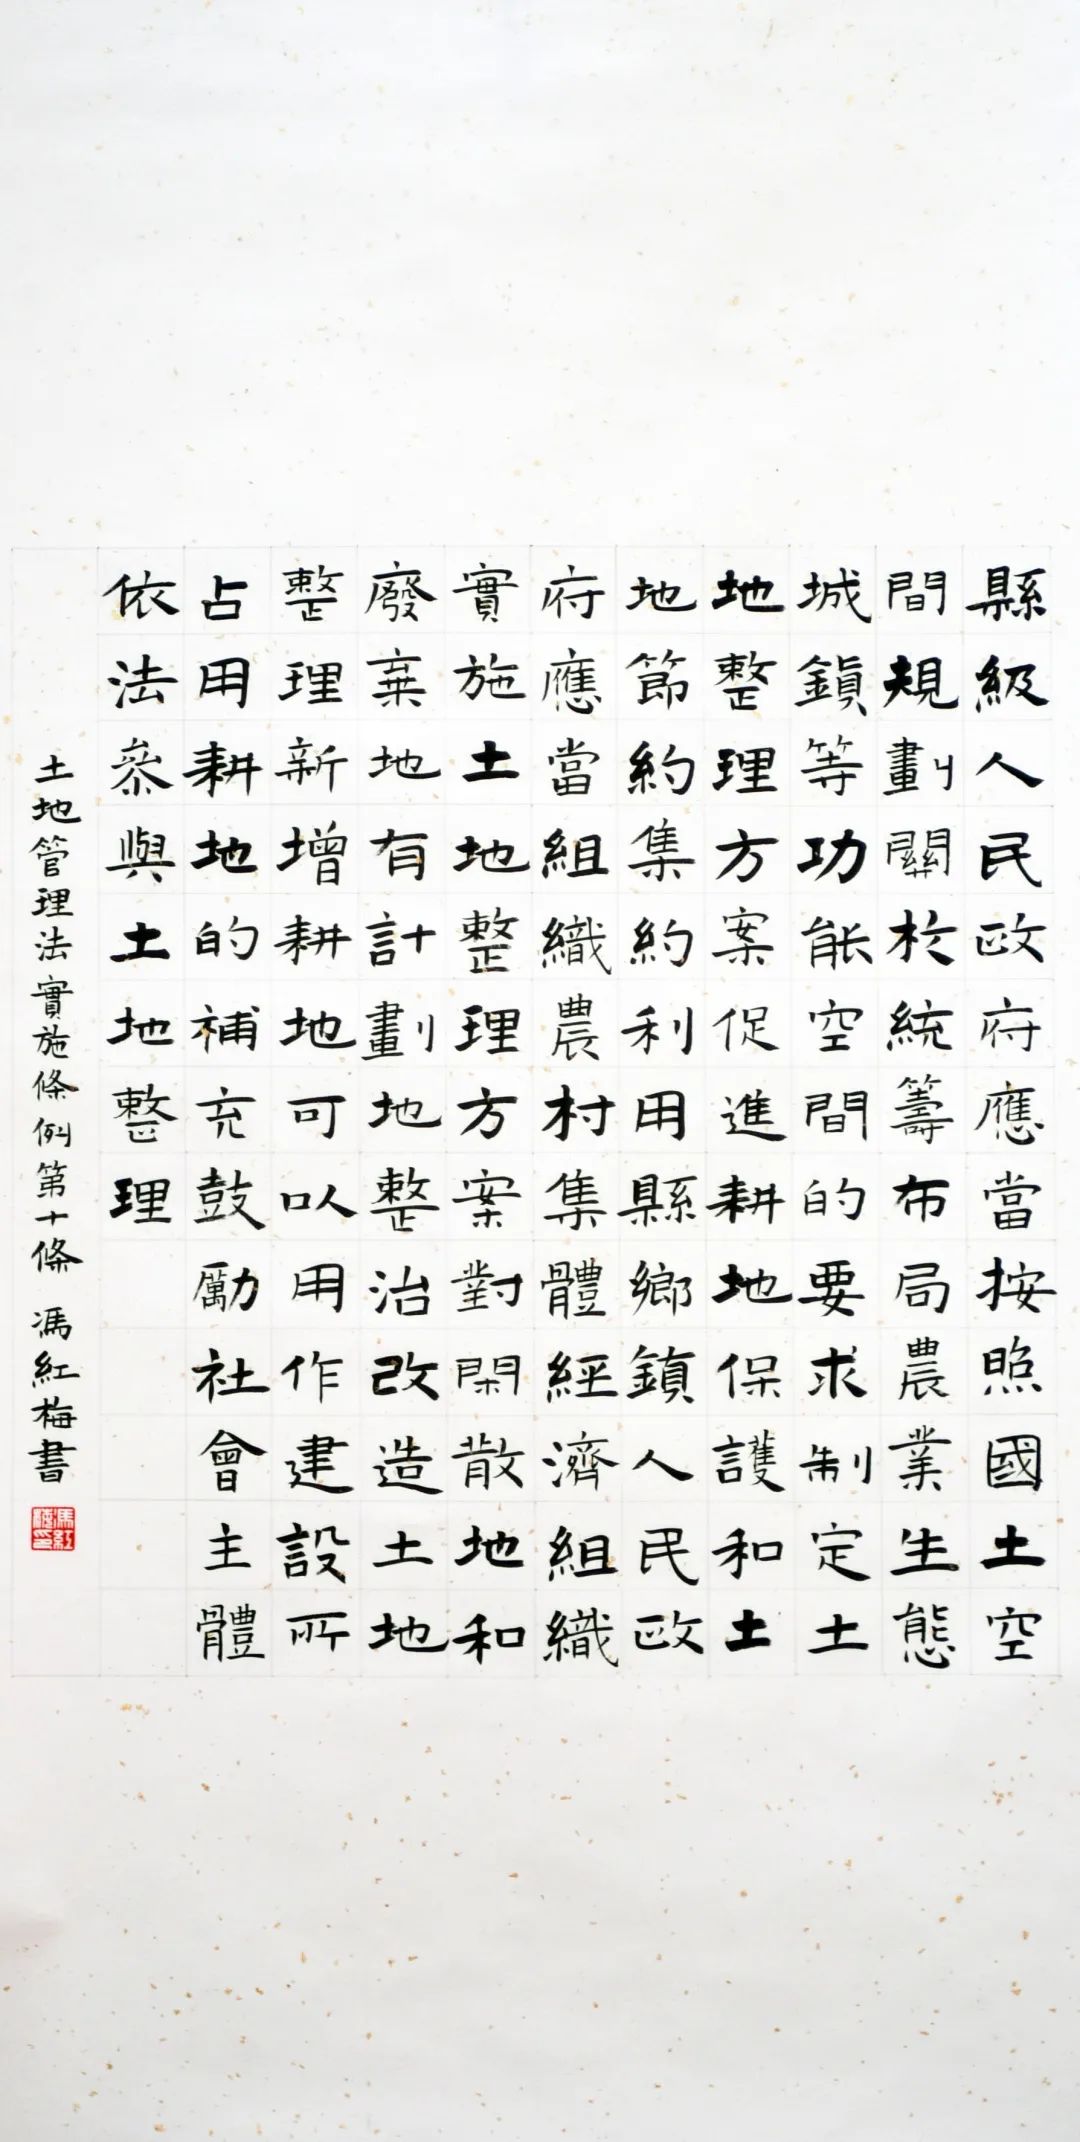 縣級人民政府應當按照國土空
間規劃關於統籌布局農業生態
城鎮等功能空間的要求制定土
地整理方案促進耕地保護和土
地節約集約利用縣鄉鎮人民政
府應當組織農村集體經濟組織
實施土地整理方案對閑散地和
廢棄地有計劃地整治改造土地
整理新增耕地可以用作建設所
占用耕地的補充鼓勵社會主體
依法參與土地整理
土地管理法實施條例第十條 馮紅梅書
馮紅梅印